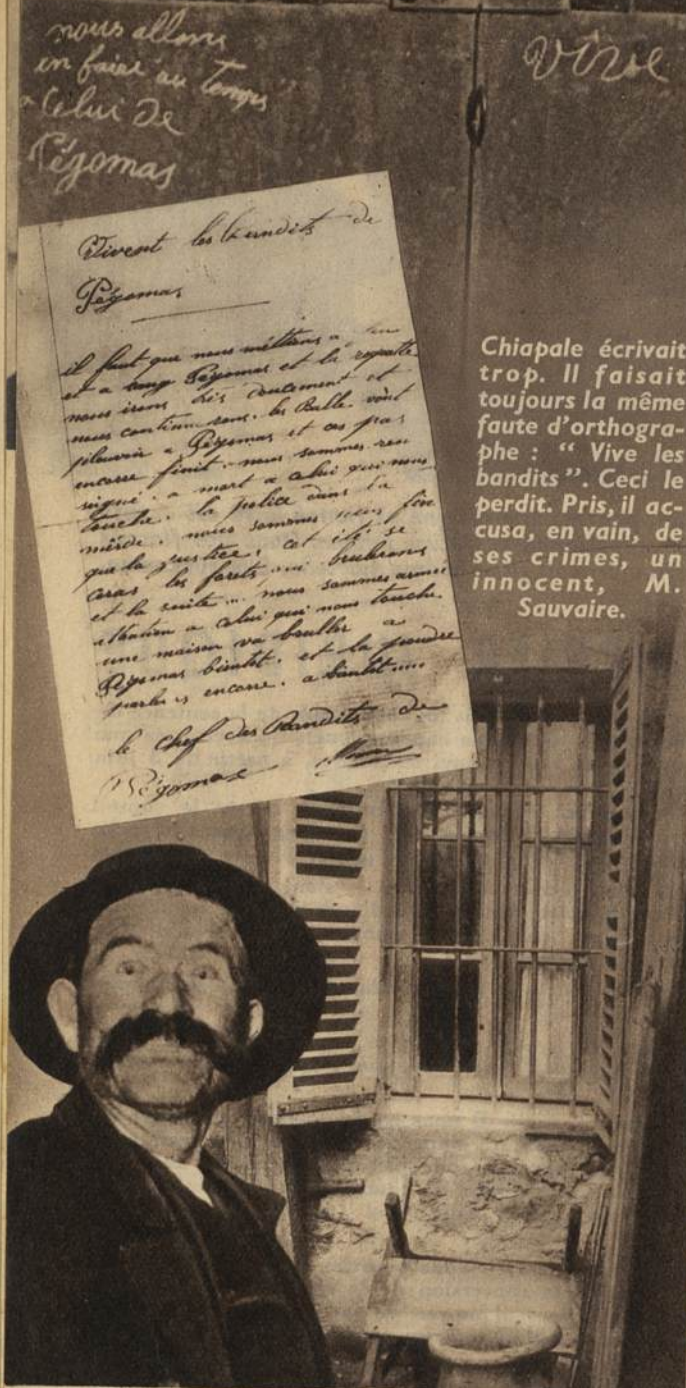 nous allons
en faire au temps
a celui de
Pégomas
vive
Vivent les bandits de
Pégomas
il faut que nous mettions a
et a sang Pégomas et la
nous irons très doucement et
nous les Balle vont
pleuvoir a Pégomas et ces pas
encorre finit. nous sommes
a mort a celui qui nous
touche. la police dans la
mèrde. nous sommes plus fin
que la justice. cet été se
ceras les forets qui brulerons
et la suite nous sommes armés
attention a celui qui nous touche.
une maison va
Pégomas bientot. et la poudre
encorre. a bientot
le chef des Bandits de
Pégomas
Chiapale écrivait
trop. Il faisait
toujours la même
faute d'orthogra-
phe : “ Vive les
bandits ”. Ceci le
perdit. Pris, il ac-
cusa, en vain, de
ses crimes, un
innocent, M.
Sauvaire.